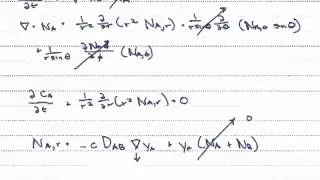 ∂t
∇· N_A = 1/r² ∂/∂r (r² N_A,r) + 1/(r sinθ) ∂/∂θ (N_A,θ sinθ)
+ 1/(r sinθ) ∂N_Aφ/∂φ (N_A,φ)
∂C_A/∂t + 1/r² ∂/∂r (r² N_A,r) = 0
0
N_A,r = -c D_AB ∇y_A + y_A (N_A + N_B)